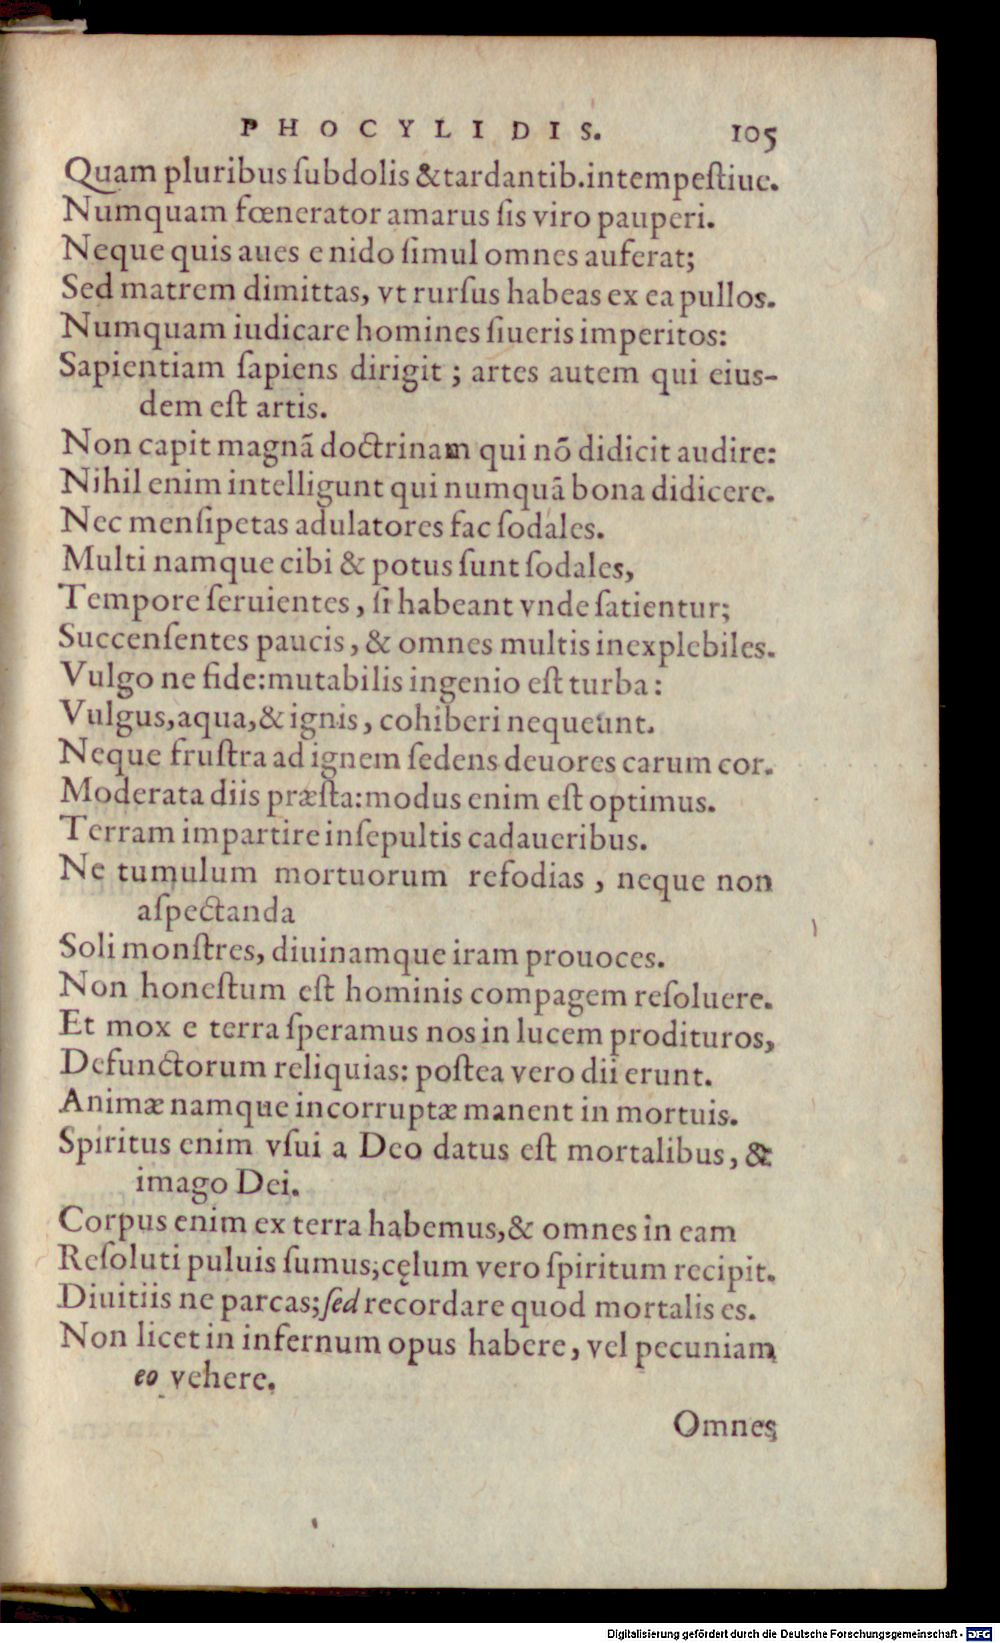 PHOCYLIDIS. 105
Quam pluribus ſubdolis &tardantib.intempeſtiue.
Numquam fœnerator amarus ſis viro pauperi.
Neque quis aues e nido ſimul omnes auferat;
Sed matrem dimittas, vt rurſus habeas ex ea pullos.
Numquam iudicare homines ſiueris imperitos:
Sapientiam ſapiens dirigit ; artes autem qui eius-
dem eſt artis.
Non capit magnã doctrinam qui nõ didicit audire:
Nihil enim intelligunt qui numquã bona didicere.
Nec menſipetas adulatores fac ſodales.
Multi namque cibi & potus ſunt ſodales,
Tempore ſeruientes, ſi habeant vnde ſatientur;
Succenſentes paucis, & omnes multis inexplebiles.
Vulgo ne fide:mutabilis ingenio eſt turba:
Vulgus,aqua,& ignis, cohiberi nequeunt.
Neque fruſtra ad ignem ſedens deuores carum cor.
Moderata diis præſta:modus enim eſt optimus.
Terram impartire inſepultis cadaueribus.
Ne tumulum mortuorum refodias, neque non
aſpectanda
Soli monſtres, diuinamque iram prouoces.
Non honeſtum eſt hominis compagem reſoluere.
Et mox e terra ſperamus nos in lucem prodituros,
Defunctorum reliquias: poſtea vero dii erunt.
Animæ namque incorruptæ manent in mortuis.
Spiritus enim vſui a Deo datus eſt mortalibus, &
imago Dei.
Corpus enim ex terra habemus,& omnes in eam
Reſoluti puluis ſumus;cęlum vero ſpiritum recipit.
Diuitiis ne parcas;ſed recordare quod mortalis es.
Non licet in infernum opus habere, vel pecuniam
eo vehere.
Omnes
Digitalisierung gefördert durch die Deutsche Forschungsgemeinschaft - DFG